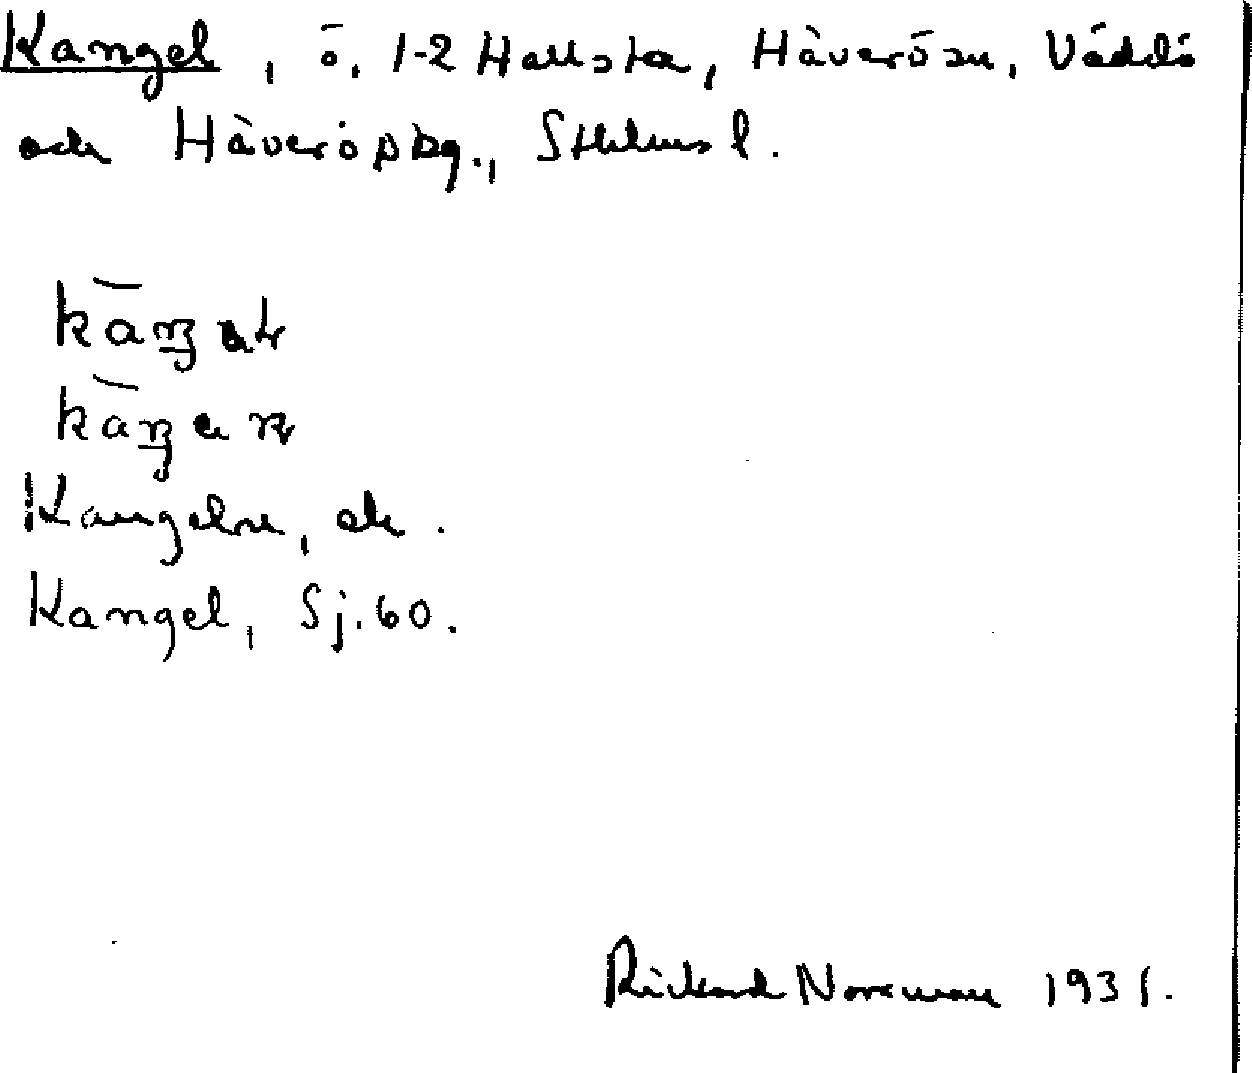 Kangel, ö, 1-2 Hallsta, Häverö sn, Väddö
och Häverö skg., Sthlms l.
Kangeln, ek.
Kangel, Sj. 60.
Rickard Norrman 1931.